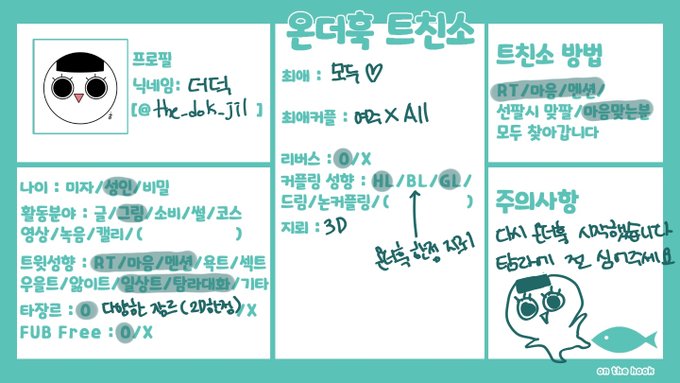 온더훅 트친소
프로필
닉네임: 더덕
[@the_dok_jil ]
나이 : 미자/성인/비밀
활동분야 : 글/그림/소비/썰/코스
영상/녹음/캘리/( )
트윗성향 : RT/마음/멘션/욕트/섹트
우울트/앓이트/일상트/탐라대화/기타
타장르 : O 다양한 장르(2D한정)/X
FUB Free : O/X
최애 : 모두♡
최애커플 : 여주×All
리버스 : O/X
커플링 성향 : HL/BL/GL/
드림/논커플링/( )
지뢰 : 3D
온더훅 한정 지뢰
트친소 방법
RT/마음/멘션/
선팔시 맞팔/마음맞는분
모두 찾아갑니다
주의사항
다시 온더훅 시작했습니다
탐라에 절 심어주세요
on the hook